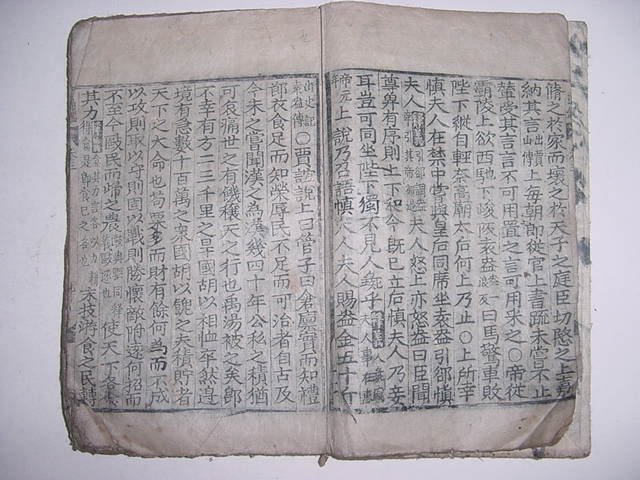 脩之於家而壞之於天子之庭臣切愍之上嘉
納其言出賈山傳上每朝郎從官上書疏未嘗不止
輦受其言言不可用置之言可用采之○帝從
霸陵上欲西馳下峻阪袁盎曰馬驚車敗
陛下縱自輕柰高廟太后何上乃止○上所幸
慎夫人在禁中嘗與皇后同席坐袁盎引郤慎
夫人夫人怒上亦怒盎曰臣聞
尊卑有序則上下和今既已立后慎夫人乃妾
耳豈可同坐陛下獨不見人彘乎
帝元年上說乃召語慎夫人夫人賜盎金五十斤
出史記袁盎傳○賈誼說上曰管子曰倉廩實而知禮
節衣食足而知榮辱民不足而可治者自古及
今未之嘗聞漢之為漢幾四十年公私之積猶
可哀痛世之有饑穰天之行也禹湯被之矣即
不幸有方二三千里之旱國胡以相恤卒然邊
境有急數十百萬之衆國胡以餽之夫積貯者
天下之大命也苟粟多而財有餘何為而不成
以攻則取以守則固以戰則勝懷敵附遠何招而
不至今敺民而歸之農使天下各食
其力末技游食之民轉